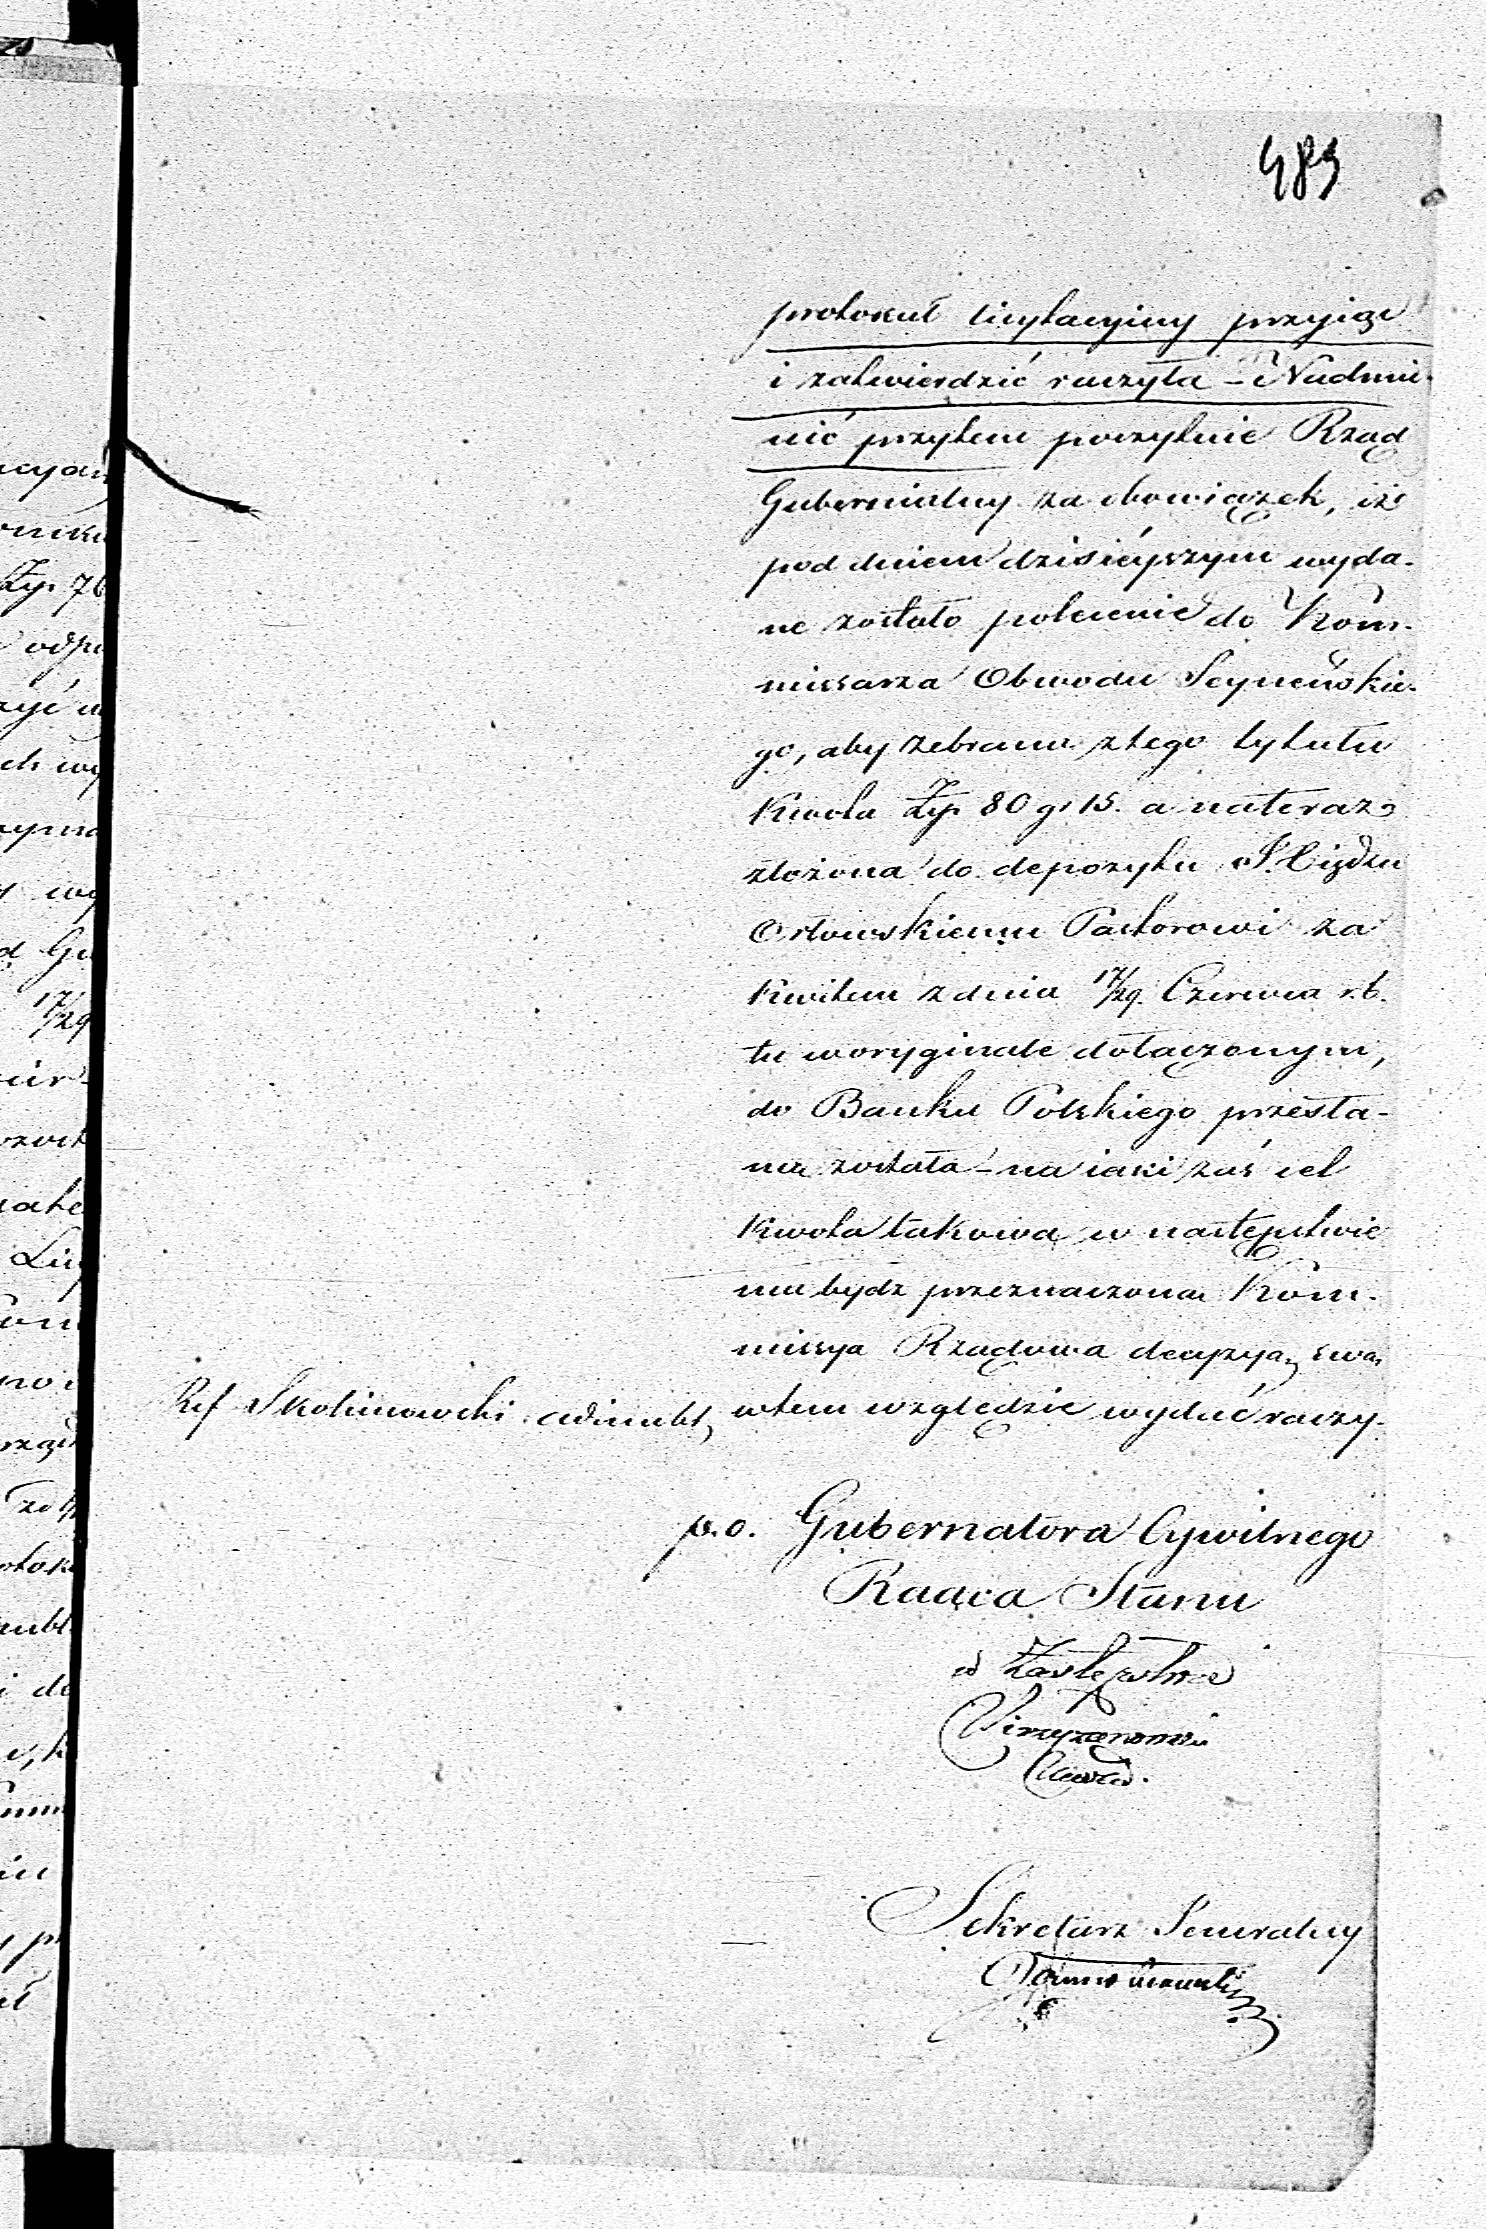 489
protokuł licytacyiny przyiąć
i zatwierdzić raczyła – Nadmie-
nić przytem poczytuie Rząd
Gubernialny za obowiązek, iż
pod dniem dzisieyszym wyda-
ne zostało polecenie do Kom-
missarza Obwodu Seyneńskie-
go, aby zebrana z tego tytułu
Kwota Złp. 80 gr 15. a nateraz
złożona do depozytu X. Eigdzu
Orłowskiemu Pastorowi za
Kwitem z dnia 17/29. Czerwca r. b.
tu w oryginale dołączonym,
do Banku Polskiego przesła-
na została – na iaki zaś cel
Kwota takowa w następstwie
ma bydź przeznaczona Kom-
missya Rządowa decyzyą swą
Ref Skolimowski
w tem względzie wydać raczy.
p.o. Gubernatora Cywilnego
Radca Stanu
w Zastępstwie
Sekretarz Jeneralny